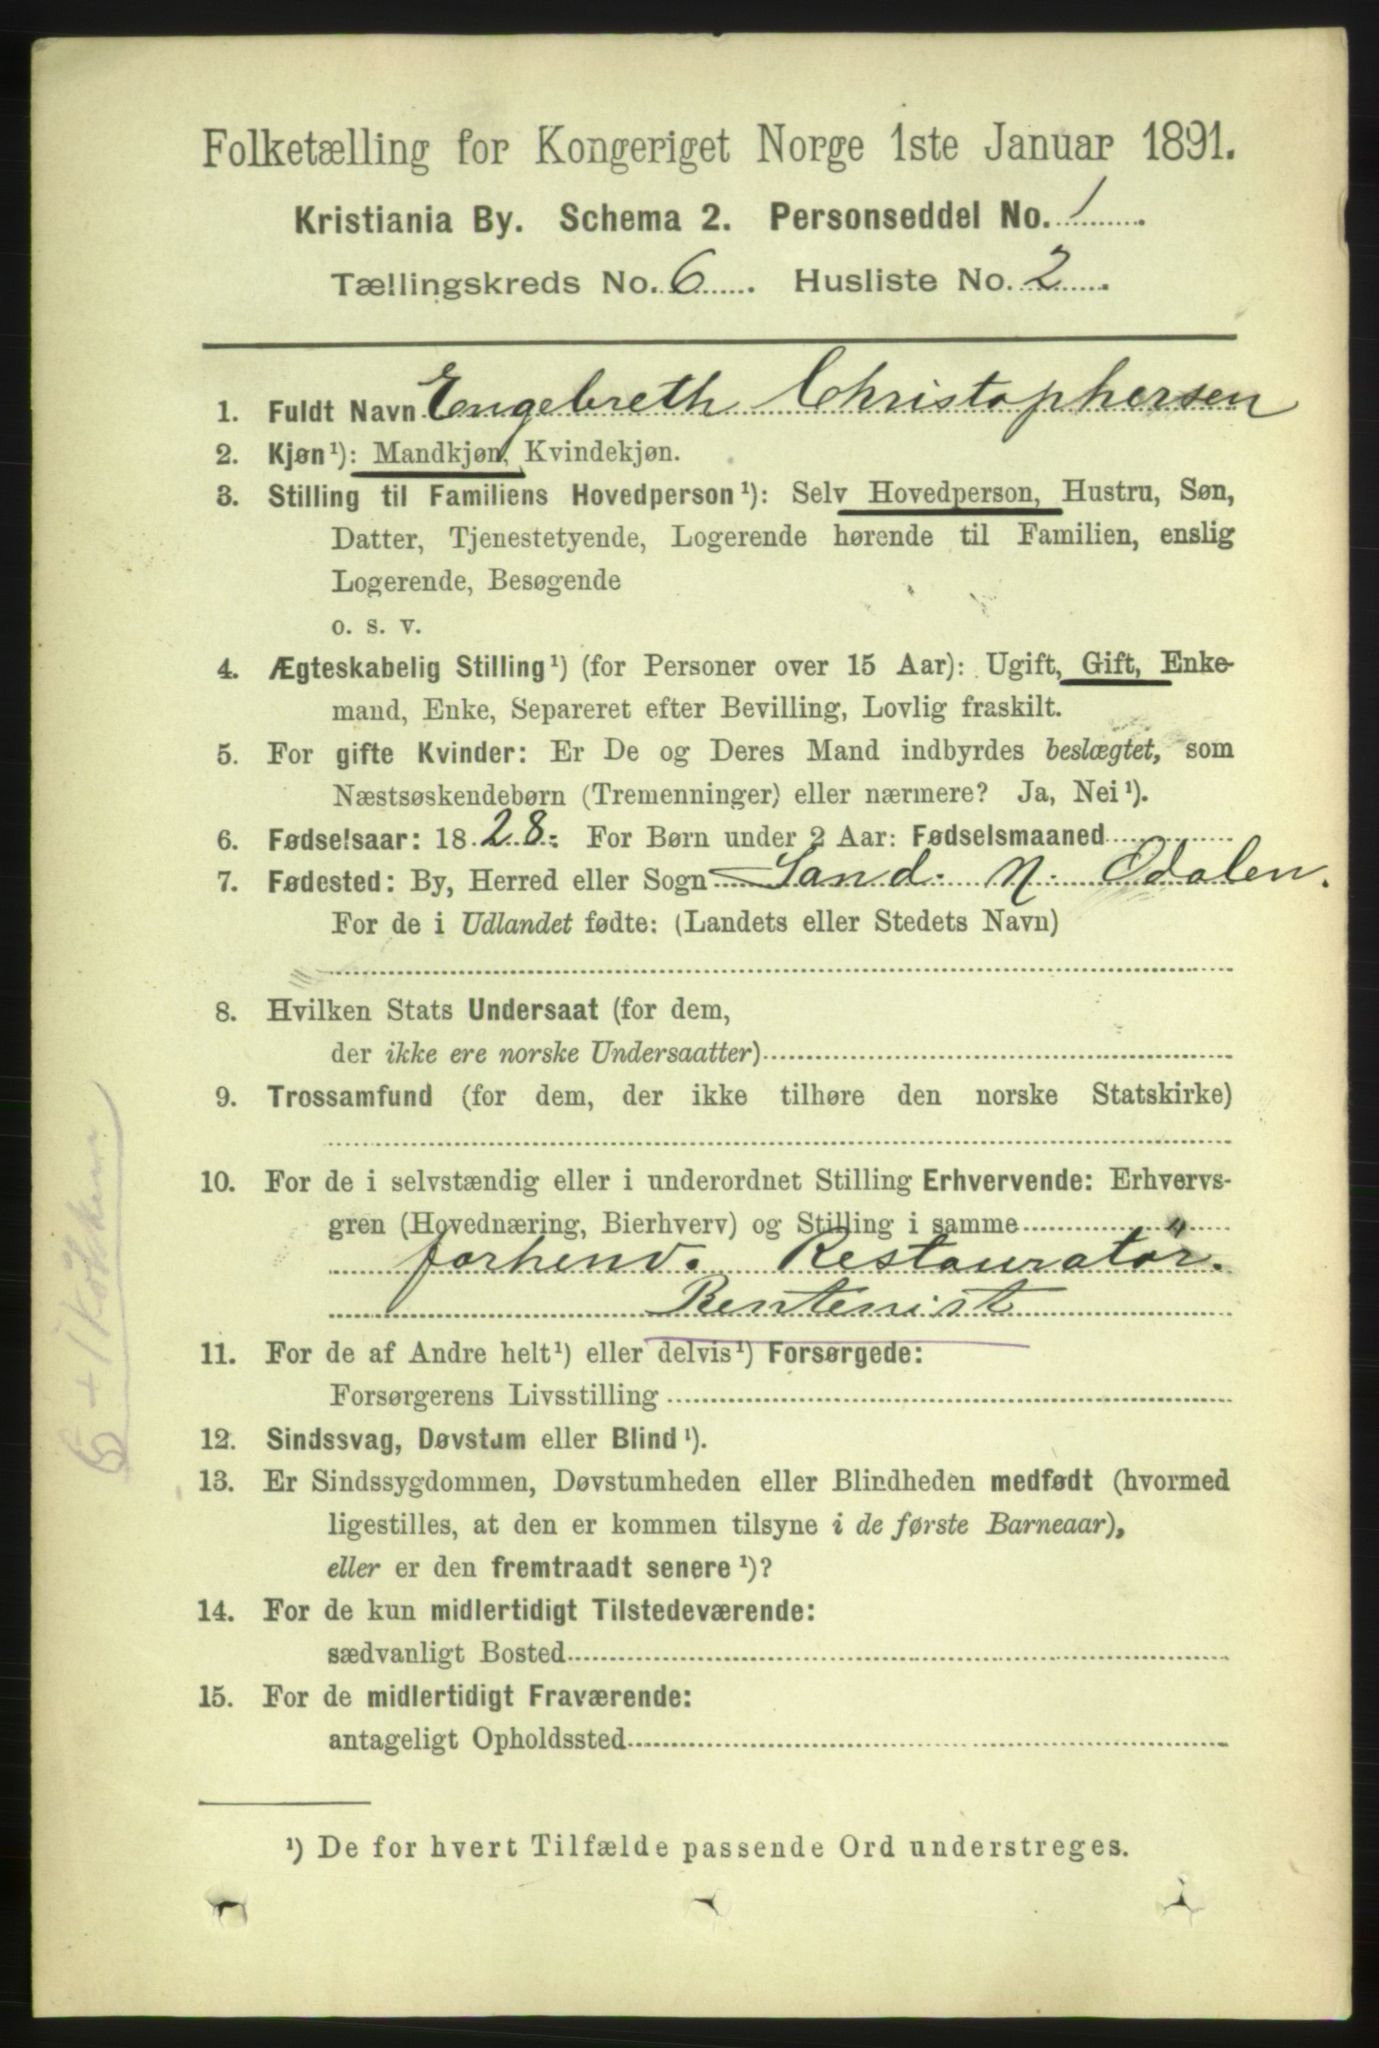 Folketælling for Kongeriget Norge 1ste Januar 1891.
Kristiania By. Schema 2. Personseddel No. 1
Tællingskreds No. 6. Husliste No. 2.
1. Fuldt Navn Engebreth Christophersen
2. Kjøn¹): Mandkjøn, Kvindekjøn.
3. Stilling til Familiens Hovedperson¹): Selv Hovedperson, Hustru, Søn,
Datter, Tjenestetyende, Logerende hørende til Familien, enslig
Logerende, Besøgende
o. s. v.
4. Ægteskabelig Stilling¹) (for Personer over 15 Aar): Ugift, Gift, Enke-
mand, Enke, Separeret efter Bevilling, Lovlig fraskilt.
5. For gifte Kvinder: Er De og Deres Mand indbyrdes beslægtet, som
Næstsøskendebørn (Tremenninger) eller nærmere? Ja, Nei¹).
6. Fødselsaar: 1828. For Børn under 2 Aar: Fødselsmaaned
7. Fødested: By, Herred eller Sogn Sand. N. Odalen.
For de i Udlandet fødte: (Landets eller Stedets Navn)
8. Hvilken Stats Undersaat (for dem,
der ikke ere norske Undersaatter)
9. Trossamfund (for dem, der ikke tilhøre den norske Statskirke)
10. For de i selvstændig eller i underordnet Stilling Erhvervende: Erhvervs-
gren (Hovednæring, Bierhverv) og Stilling i samme
forhenv. Restauratör.
Rentenist
11. For de af Andre helt¹) eller delvis¹) Forsørgede:
Forsørgerens Livsstilling
12. Sindssvag, Døvstum eller Blind¹).
13. Er Sindssygdommen, Døvstumheden eller Blindheden medfødt (hvormed
ligestilles, at den er kommen tilsyne i de første Barneaar),
eller er den fremtraadt senere¹)?
14. For de kun midlertidigt Tilstedeværende:
sædvanligt Bosted
15. For de midlertidigt Fraværende:
antageligt Opholdssted
¹) De for hvert Tilfælde passende Ord understreges.
6 + 1 Kökken